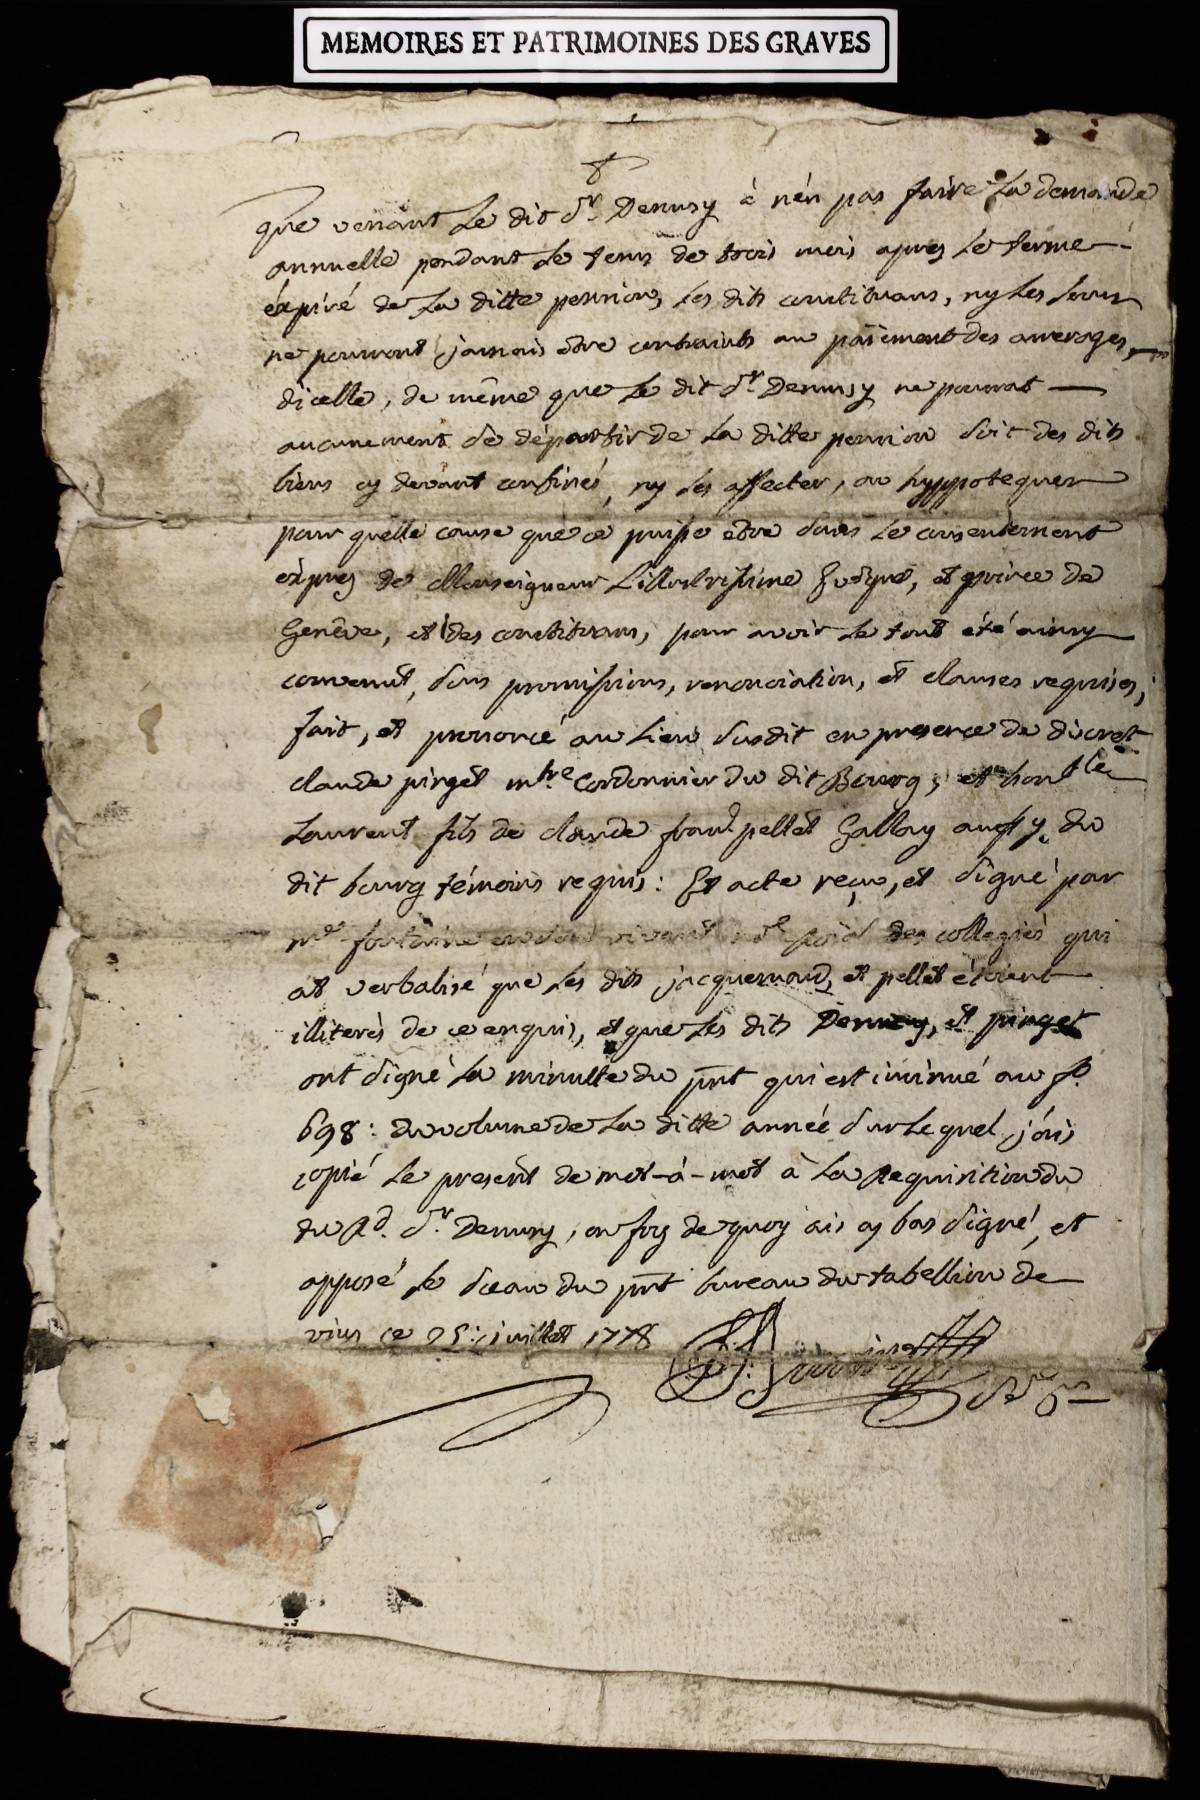 MEMOIRES ET PATRIMOINES DES GRAVES
8
que venant le dit Sr. Denusy à n'en pas faire la demande
annuelle pendant le tems de trois mois apres le terme
éxpiré de la ditte pension, les dits constituans, ny les leurs
ne pourront jamais être contraints au païement des arrerages
dicelle, de même que le dit Sr. Denusy ne pourrat
aucunement se départir de la ditte pension soit des dits
biens cy devant confinés, ny les affecter, ou hyppotequer
pour quelle cause que ce puisse être sans le consentement
éxpres de Monseigneur L'illustrissime Evêque, et prince de
Genêve, et des constituans, pour avoir le tout été ainsy
convenut, sous promissions, renonciation, et clauses requises,
fait, et prononcé au lieu susdit en presence de discret
claude pirget mtre Cordonnier du dit Bourg, et honble
Laurent fils de claude frans pellet Gallay du
dit bourg témoins requis: Et acte reçu, et signé par
me fontaine vivant des collegiés qui
at verbalisé que les dits jacquemard, et pellet étoient
illiterés de ce enquis, et que les dits Denusy, et pirget
ont signé la minutte du pnt qui est insinué au fo.
698: du volume de la ditte année sur lequel j'ais
copié le present de mot-à-mot à la Requisition du
du Rd. Sr. Denusy, en foy de quoy ais cy bas signé, et
apposé le sceau du pnt bureau du tabellion de
vius ce 25: juillet 1778